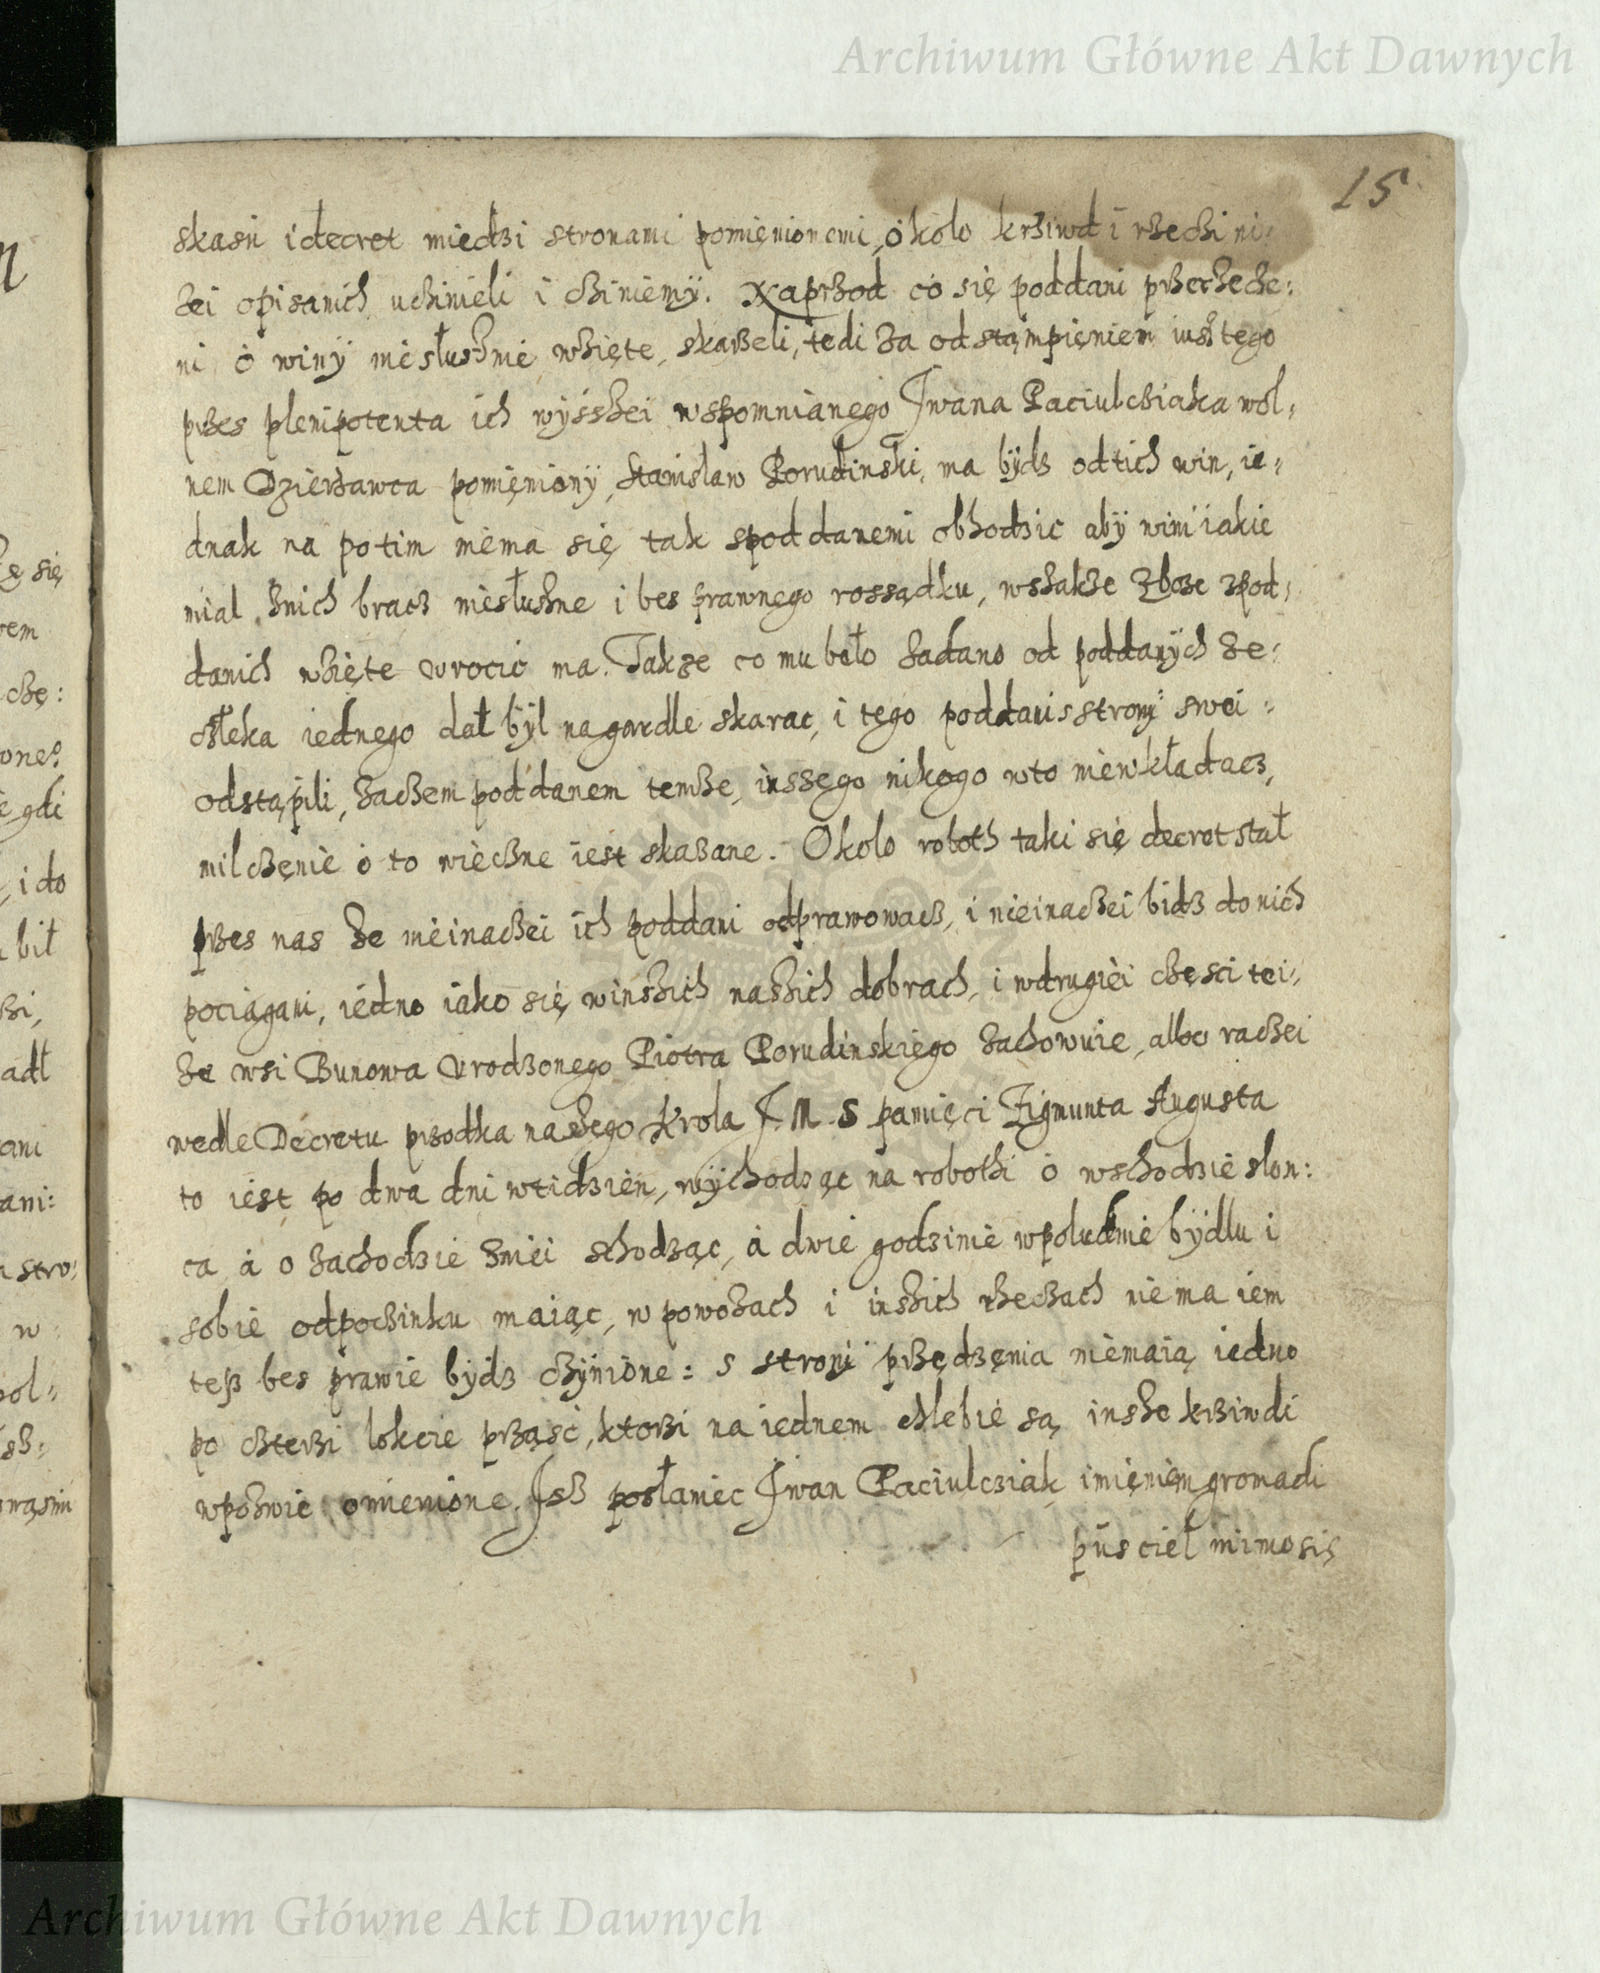 Archiwum Główne Akt Dawnych
15
skasń i decret miedzi stronami pomięnionemi, około krziwd i rzechi ni:
zei opisanich uchinieli i chiniemÿ. Naprzod co się poddani przerzeche:
ni o winÿ niesłusznie wzięte skarzeli, tedi za odstąmpięniem iusz tego
przes plenipotenta ich wÿsszei wspomnianego Iwana Paciulcziaka wol:
nem Dzierzawca pomięnionÿ, Stanislaw Porudinski, ma bÿdz od tich win, ie:
dnak na potim niema się tak spoddanemi obhodzic abÿ wini iakie
mial z nich bracz niesłuszne i bes prawnego rossądku, wszakze zboze zpod:
danich wzięte wrocic ma. Takze co mu beło zadano od poddanÿch ze:
człeka iednego dał bÿl na gardle skarac, i tego poddani s stronÿ swei:
odstąpili, zaczem poddanem temze, inszego nikogo wto niewkładacz,
milczęnie o to wieczne iest skazane. Okolo roboth taki się decret stał
przes nas ze nieinaczei ich poddani odprawowacz, i nieinaczei bidz do nich
pociągani, iedno iako się winszich naszich dobrach, i wdrugiei częsci tei:
ze wsi Bunowa Urodzonego Piotra Porudinskiego zachowuie, albo raczei
wedle Decretu przodka naszego Krola J M S pamięci Zigmunta Augusta
to iest po dwa dni wtidzień, wÿchodząc na robothi o wschodzie slon:
ca a o zachodzie zniei schodząc, a dwie godzinie wpoludnie bÿdlu i
sobie odpoczinku maiąc, w powozach i inszich rzeczach niema iem
tesz bes prawie bÿdz czÿnione: s stronÿ przędzęnia niemaią iedno
po czterzi lokcie prząsc, ktorzi na iednem chlebie są insze krziwdi
wpozwie omienione. Isz posłaniec Iwan Paciulcziak imięniem gromadi
pusciel mimo się
Archiwum Główne Akt Dawnych